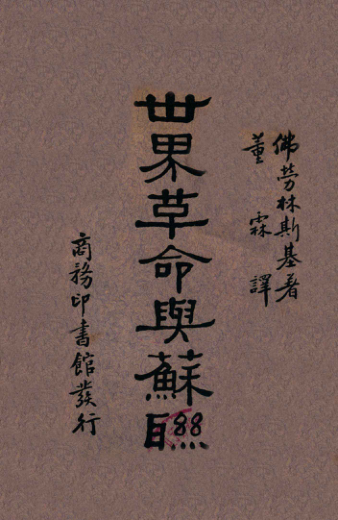 佛勞林斯基著
董霖譯
世界革命與蘇聯
商務印書館發行